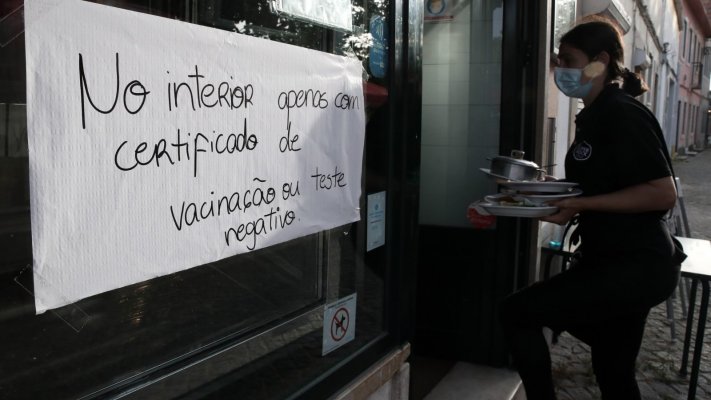 No interior apenas com
certificado de
vacinação ou teste
negativo.